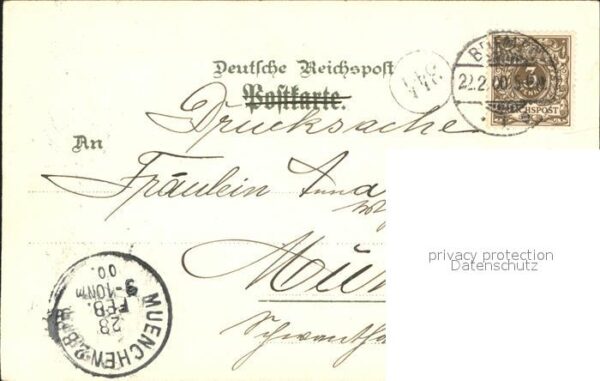 Deutsche Reichspost
Postkarte.
Drucksache
An
Fräulein Anna
Mün
Schwanth
344
22.2.00
3
CHSPOST
MUENCHEN 2. B.
23
FEB.
9-10 Nm
00.
privacy protection
Datenschutz